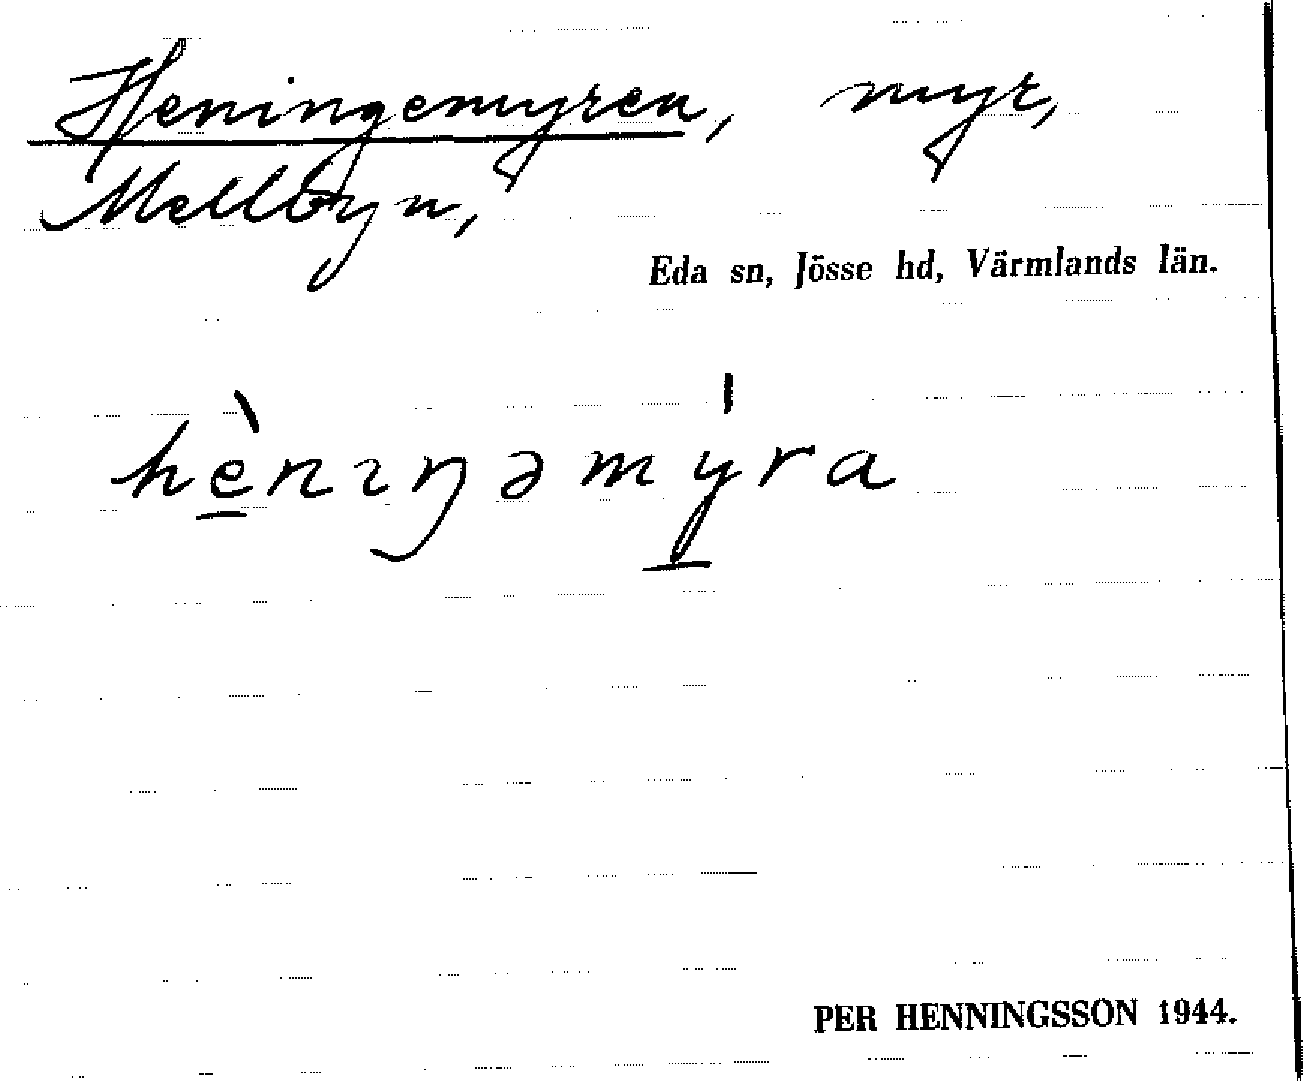 Heningemyren, myr,
Mellbyn,
Eda sn, Jösse hd, Värmlands län.
hènıŋəmýra
PER HENNINGSSON 1944.